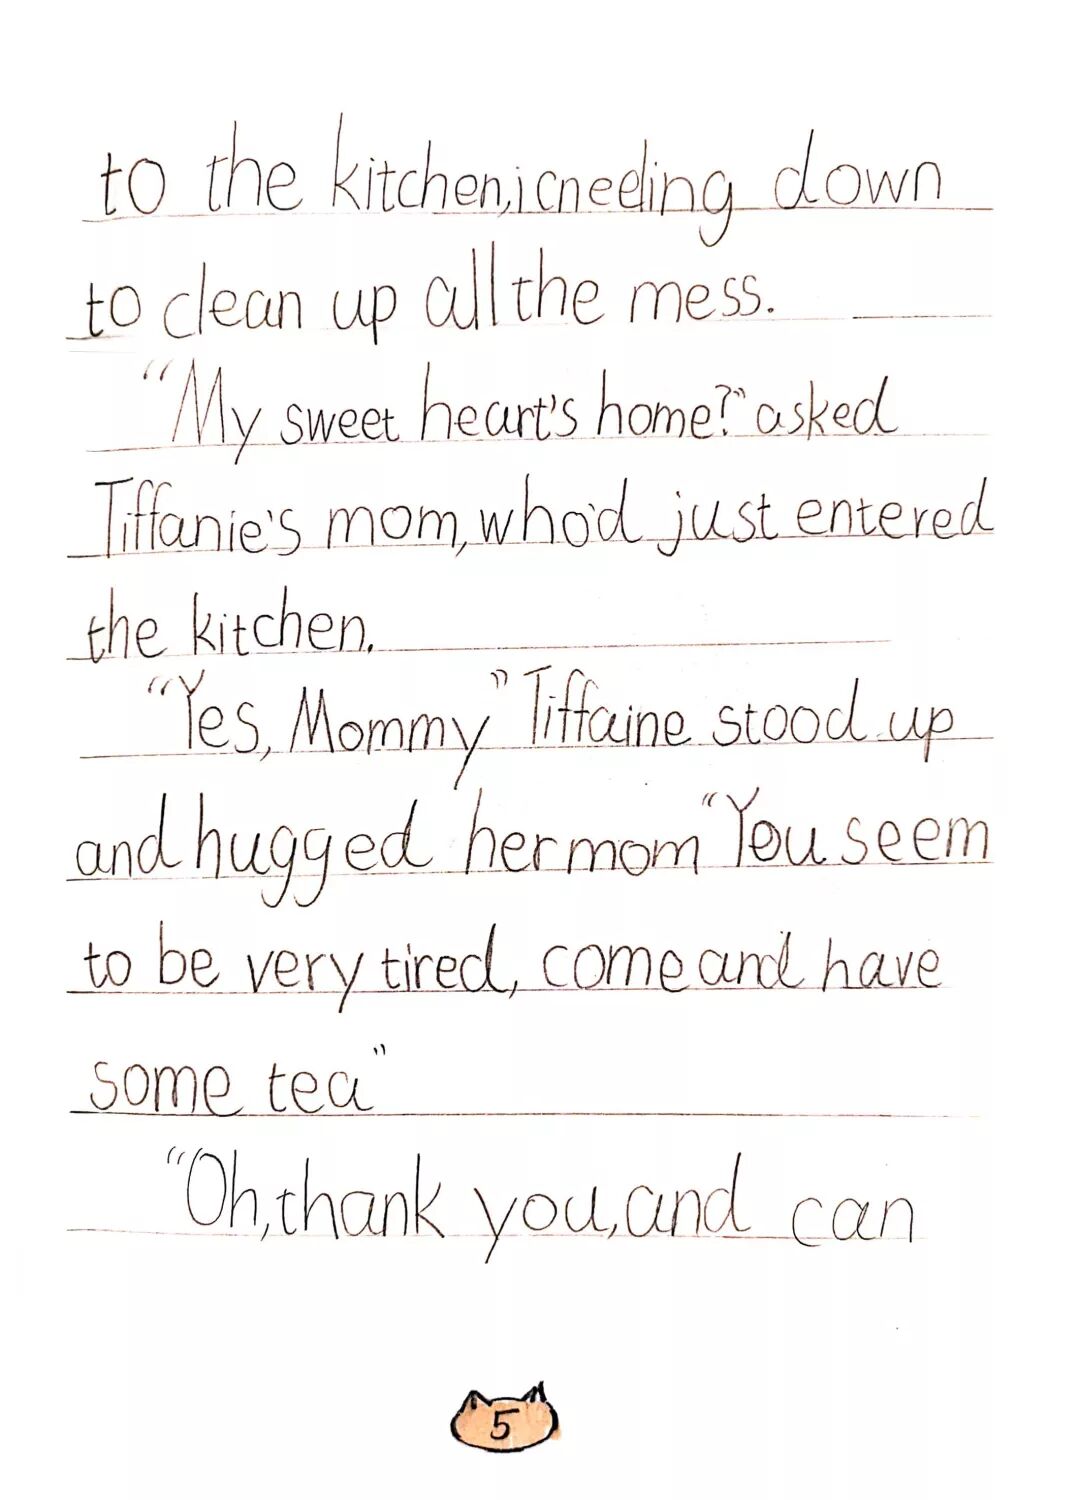 to the kitchen,icneeling down
to clean up all the mess.
“My sweet heart's home?” asked
Tiffanie's mom, who'd just entered
the kitchen.
“Yes, Mommy” Tiffaine stood up
and hugged her mom “You seem
to be very tired, come and have
some tea”
“Oh, thank you, and can
5